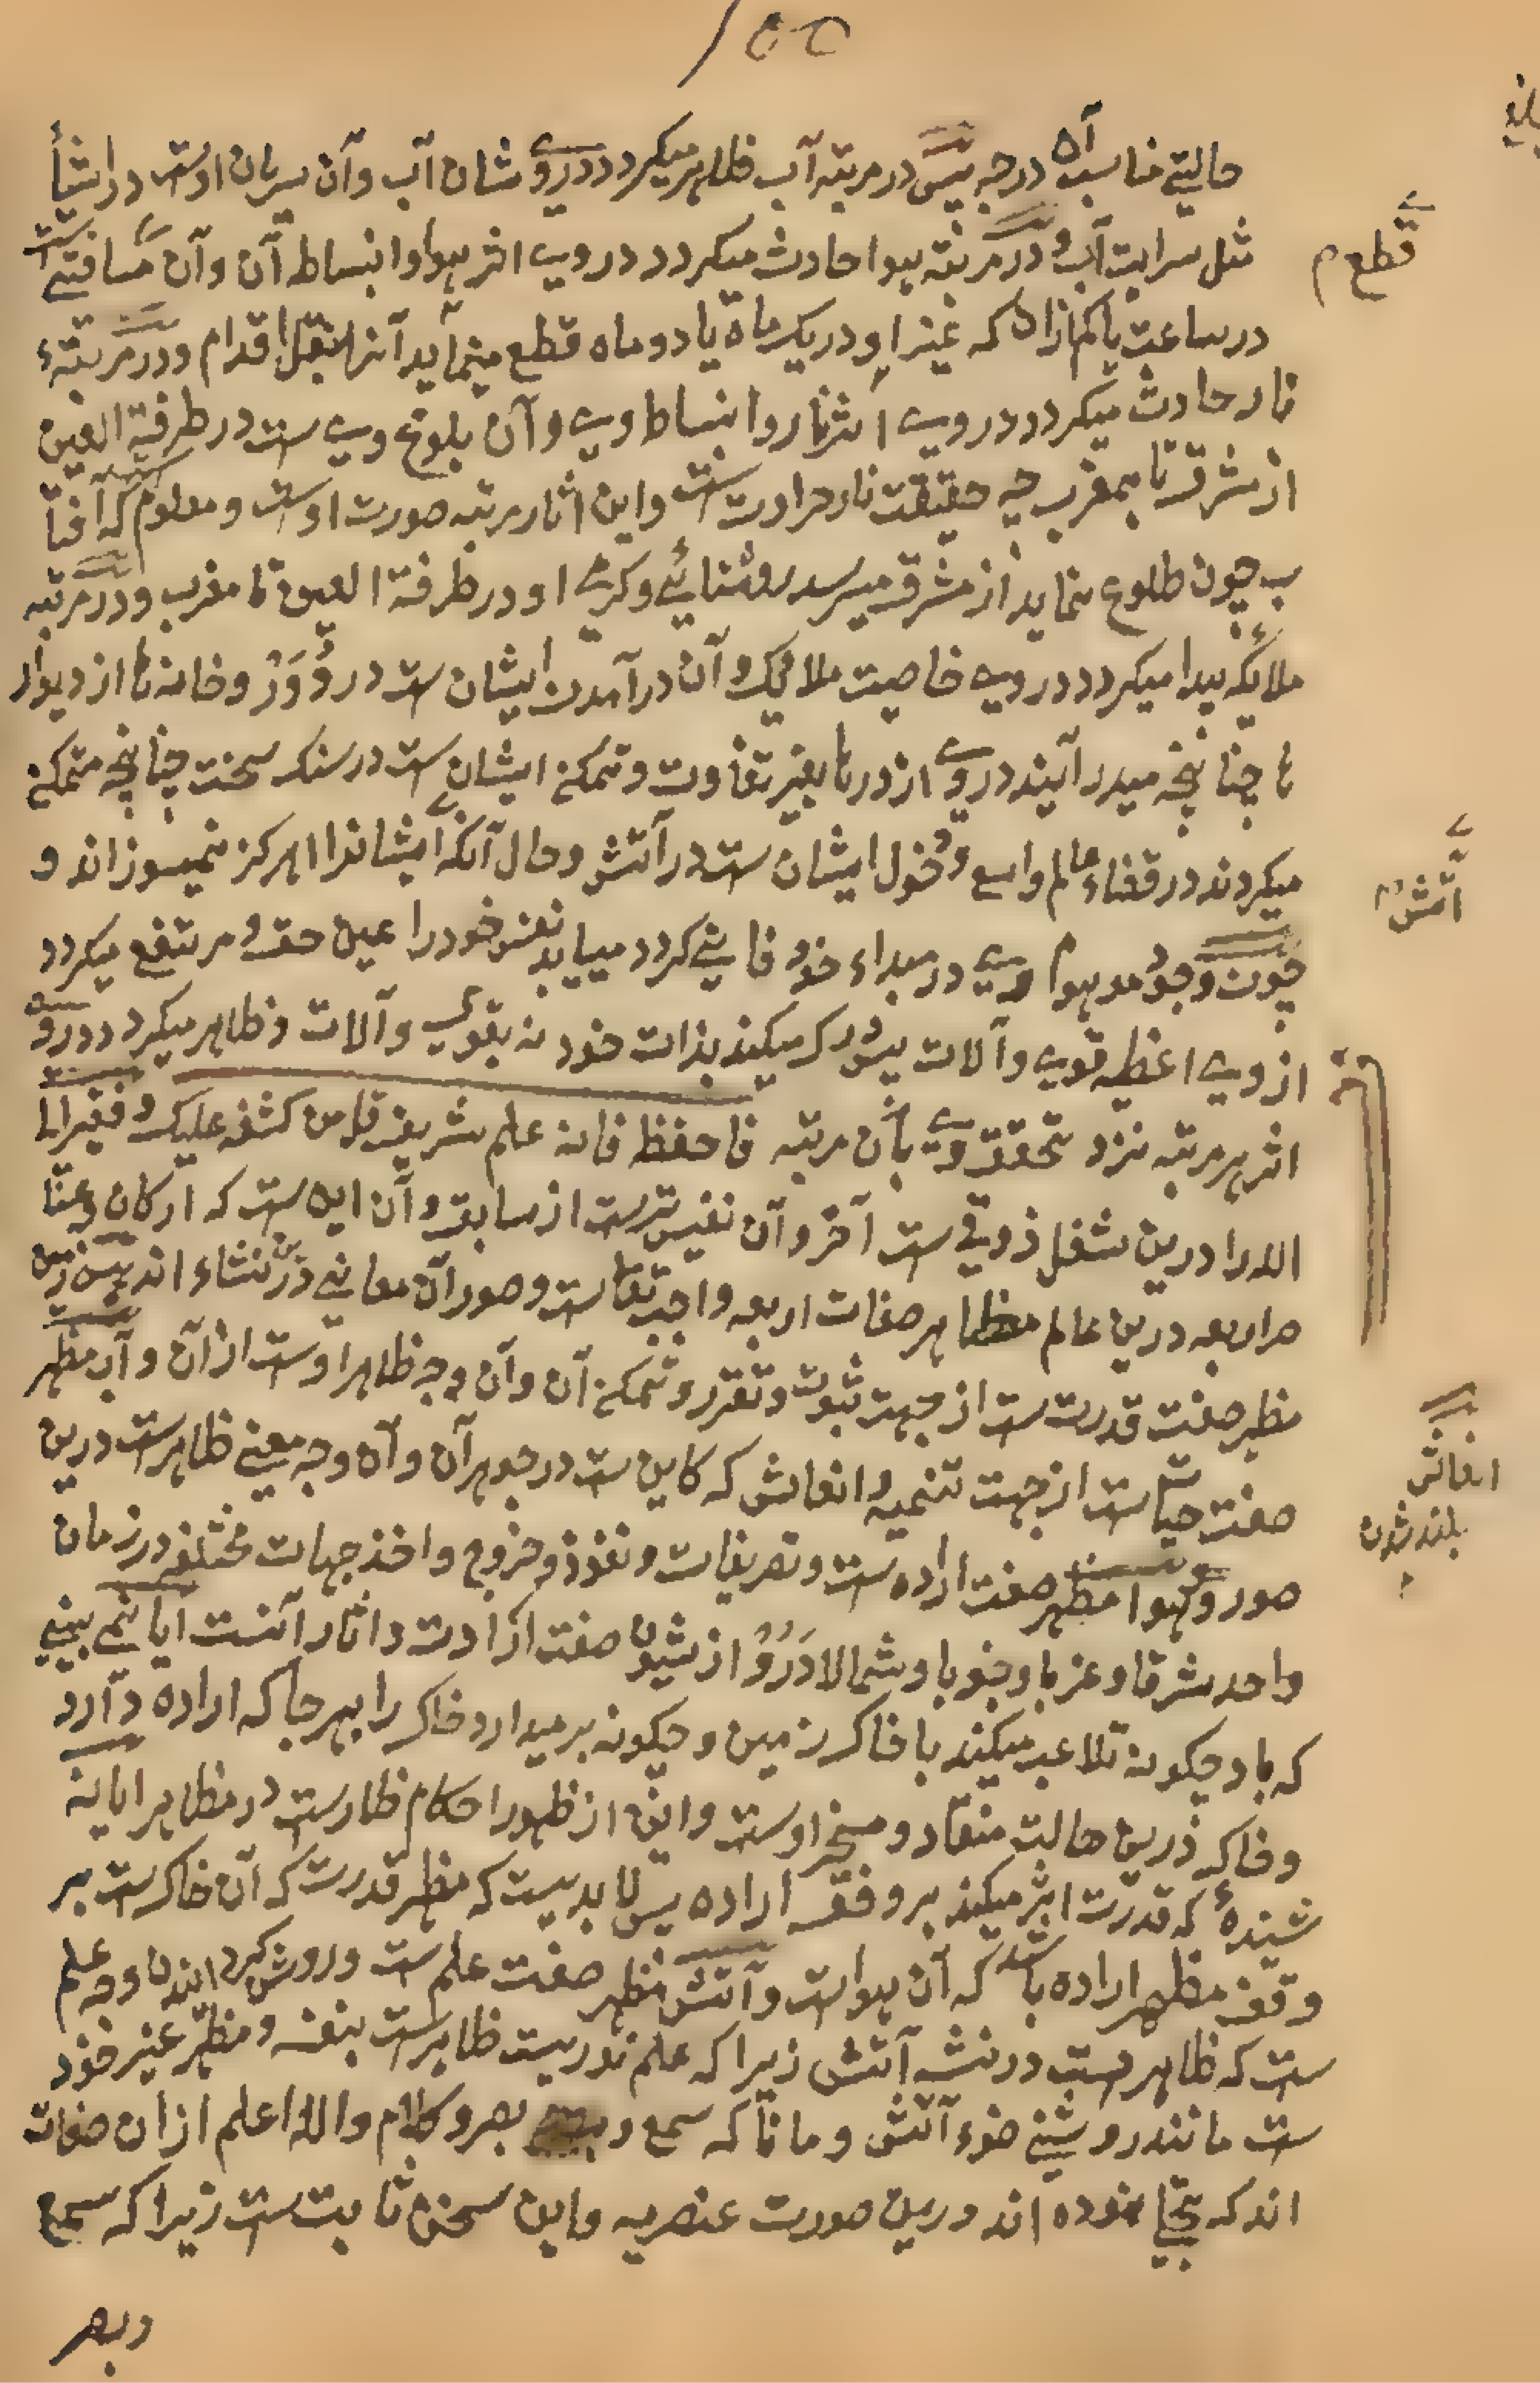 حالتے مناسب آن درجہ پس در مرتبہ آب ظاہر میکردد در وی شان آب وآن سریان اوست در اشیأ
مثل سرایت آب و در مرتبہ ہوا حادث میکردد در وے اثر ہوا وانبساط آن وآن مسافتے ست
قطع م
در ساعت یا کم ازان کہ غیر او در یک ماہ یا دو ماہ قطع مینماید آنرا بنقل اقدام ودر مرتبۂ
نار حادث میکردد در وے اثر نار وانبساط وے وآن بلوغ وے ست در طرفۃ العین
از مشرق تا بمغرب چہ حقیقت نار حرارت ست واین اثار مرتبہ صورت اوست ومعلوم کہ آفتا
ب چون طلوع نماید از مشرق میرسد روشنائے وکرمے او در طرفۃ العین تا مغرب ودر مرتبہ
ملائکہ پیدا میکردد در وے خاصیت ملائک وآن در آمدن ایشان ست در وخانہ ہا از دیوار
ہا چنانچہ میدر آیند در وے از درہا بغیر تفاوت وتمکن ایشان ست در سنک سخت چنانچہ متمکن
میکردند در فضاء عالم واسع ودخول ایشان ست در آتش وحال آنکہ ایشانرا ہرکز نمیسوزاند و
آتش
چون وجود موہوم وے در مبداء خود فانے کردد مییابد نفس خود را عین حق ومرتفع میکردد
از وے اغطیہ قوی وآلات پس درک میکند بذات خود نہ بقوی وآلات وظاہر میکردد در وے
اثر ہر مرتبہ نزد تحقق وے بآن مرتبہ فاحفظ فانہ علم شریف قل من کشفہ علیک وفقیر الا
اللہ را درین شغل ذوقے ست آخر وآن نفیس ترست از سابق وآن این ست کہ ارکان وعنا
صر اربعہ درین عالم مظاہر صفات اربعہ واجب تعالی ست وصور آن معانے در نشاء اند پس زمین
مظہر صفت قدرت ست از جہت ثبوت وتقرر وتمکن آن وآن وجہ ظاہر اوست از آن وآب مظہر
صفت حیات ست از جہت تنمیہ وانعاش کہ کاین ست در جوہر آن وآن وجہ معنے ظاہرست درین
انعاش
بلند شدن
صور وہوا مظہر صفت ارادہ ست وتصریفات ونفوذ وخروج واخذ جہات مختلفہ در زمان
واحد شرقا وغربا وجنوبا وشمالا در و از شیون صفت ارادت واثار آنست ایا نمے بینے
کہ باد چکونہ تلاعب میکند با خاک زمین وچکونہ برمیدارد خاک را بہر جا کہ ارادہ دارد
وخاک درین حالت منقاد ومسخر اوست واین از ظہور احکام ظاہرست در مظاہر ایا نہ
شنیدۂ کہ قدرت اثر میکند بر وفق ارادہ پس لابدیست کہ مظہر قدرت کہ آن خاک ست بر
وقف مظہر ارادہ باشد کہ آن ہواست وآتش مظہر صفت علم ست وروشن کردانیدن او وجہ علم
ست کہ ظاہرست در نشہ آتش زیرا کہ علم نوریست ظاہرست بنفسہ ومظہر غیر خود
ست مانند روشنے ضوء آتش ومانا کہ سمع وبصر وکلام واللہ اعلم ازان صفات
اند کہ تجلے نمودہ اند درین صورت عنصریہ واین سخن ثابت ست زیرا کہ سمع
وبصر